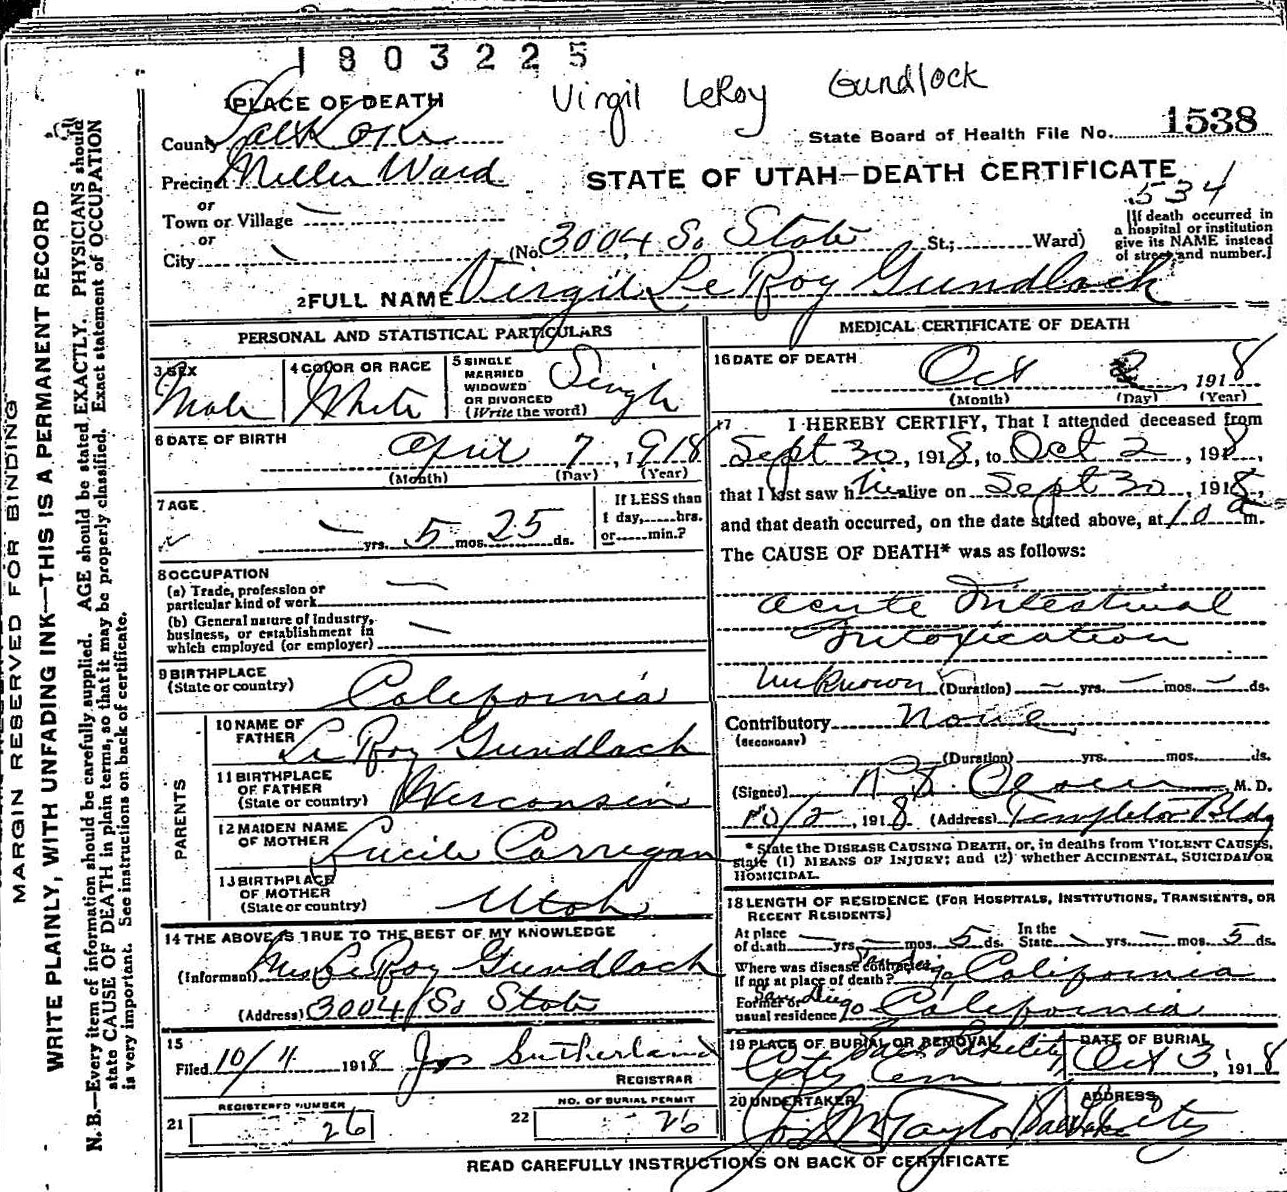 1803225
Virgil LeRoy Gundlock
1 PLACE OF DEATH
County Salt Lake
State Board of Health File No. 1538
Precinct Miller Ward
STATE OF UTAH—DEATH CERTIFICATE
534
or
Town or Village
or
City
(No. 3004 So State St.; Ward)
[If death occurred in
a hospital or institution
give its NAME instead
of street and number.]
2 FULL NAME Virgil Le Roy Gundlach
PERSONAL AND STATISTICAL PARTICULARS
3 SEX
Male
4 COLOR OR RACE
White
5 SINGLE
MARRIED
WIDOWED
OR DIVORCED
(Write the word)
Single
6 DATE OF BIRTH
April 7, 1918
(Month) (Day) (Year)
7 AGE
— yrs. 5 mos. 25 ds.
If LESS than
1 day, hrs.
or min.?
8 OCCUPATION
(a) Trade, profession or
particular kind of work —
(b) General nature of Industry,
business, or establishment in
which employed (or employer) —
9 BIRTHPLACE
(State or country) California
PARENTS
10 NAME OF
FATHER Le Roy Gundlach
11 BIRTHPLACE
OF FATHER
(State or country) Wisconsin
12 MAIDEN NAME
OF MOTHER Lucile Carrigan
13 BIRTHPLACE
OF MOTHER
(State or country) Utah
14 THE ABOVE IS TRUE TO THE BEST OF MY KNOWLEDGE
(Informant) Mrs Le Roy Gundlach
(Address) 3004 So State
15
Filed 10/4 1918 Jos Sutherland
REGISTRAR
REGISTERED NUMBER
21 26
NO. OF BURIAL PERMIT
22 26
MEDICAL CERTIFICATE OF DEATH
16 DATE OF DEATH
Oct 2, 1918
(Month) (Day) (Year)
17 I HEREBY CERTIFY, That I attended deceased from
Sept 30, 1918, to Oct 2, 1918,
that I last saw him alive on Sept 30, 1918,
and that death occurred, on the date stated above, at 10 a m.
The CAUSE OF DEATH* was as follows:
Acute Intestinal
Intoxication
Unknown (Duration) — yrs. — mos. — ds.
Contributory None
(SECONDARY)
(Duration) yrs. mos. ds.
(Signed) M. D.
10/2, 1918 (Address) Templeton Bldg
* State the DISEASE CAUSING DEATH, or, in deaths from VIOLENT CAUSES,
state (1) MEANS OF INJURY; and (2) whether ACCIDENTAL, SUICIDAL OR
HOMICIDAL.
18 LENGTH OF RESIDENCE (FOR HOSPITALS, INSTITUTIONS, TRANSIENTS, OR
RECENT RESIDENTS)
At place
of death — yrs. — mos. 5 ds.
In the
State — yrs. — mos. 5 ds.
Where was disease contracted,
If not at place of death? San Diego California
Former or
usual residence San Diego California
19 PLACE OF BURIAL OR REMOVAL
Salt Lake City
City Cem
DATE OF BURIAL
Oct 3, 1918
20 UNDERTAKER
Jos Wm Taylor
ADDRESS
Salt Lake City
READ CAREFULLY INSTRUCTIONS ON BACK OF CERTIFICATE
MARGIN RESERVED FOR BINDING
WRITE PLAINLY, WITH UNFADING INK—THIS IS A PERMANENT RECORD
N. B.—Every item of information should be carefully supplied. AGE should be stated EXACTLY. PHYSICIANS should
state CAUSE OF DEATH in plain terms, so that it may be properly classified. Exact statement of OCCUPATION
is very important. See instructions on back of certificate.